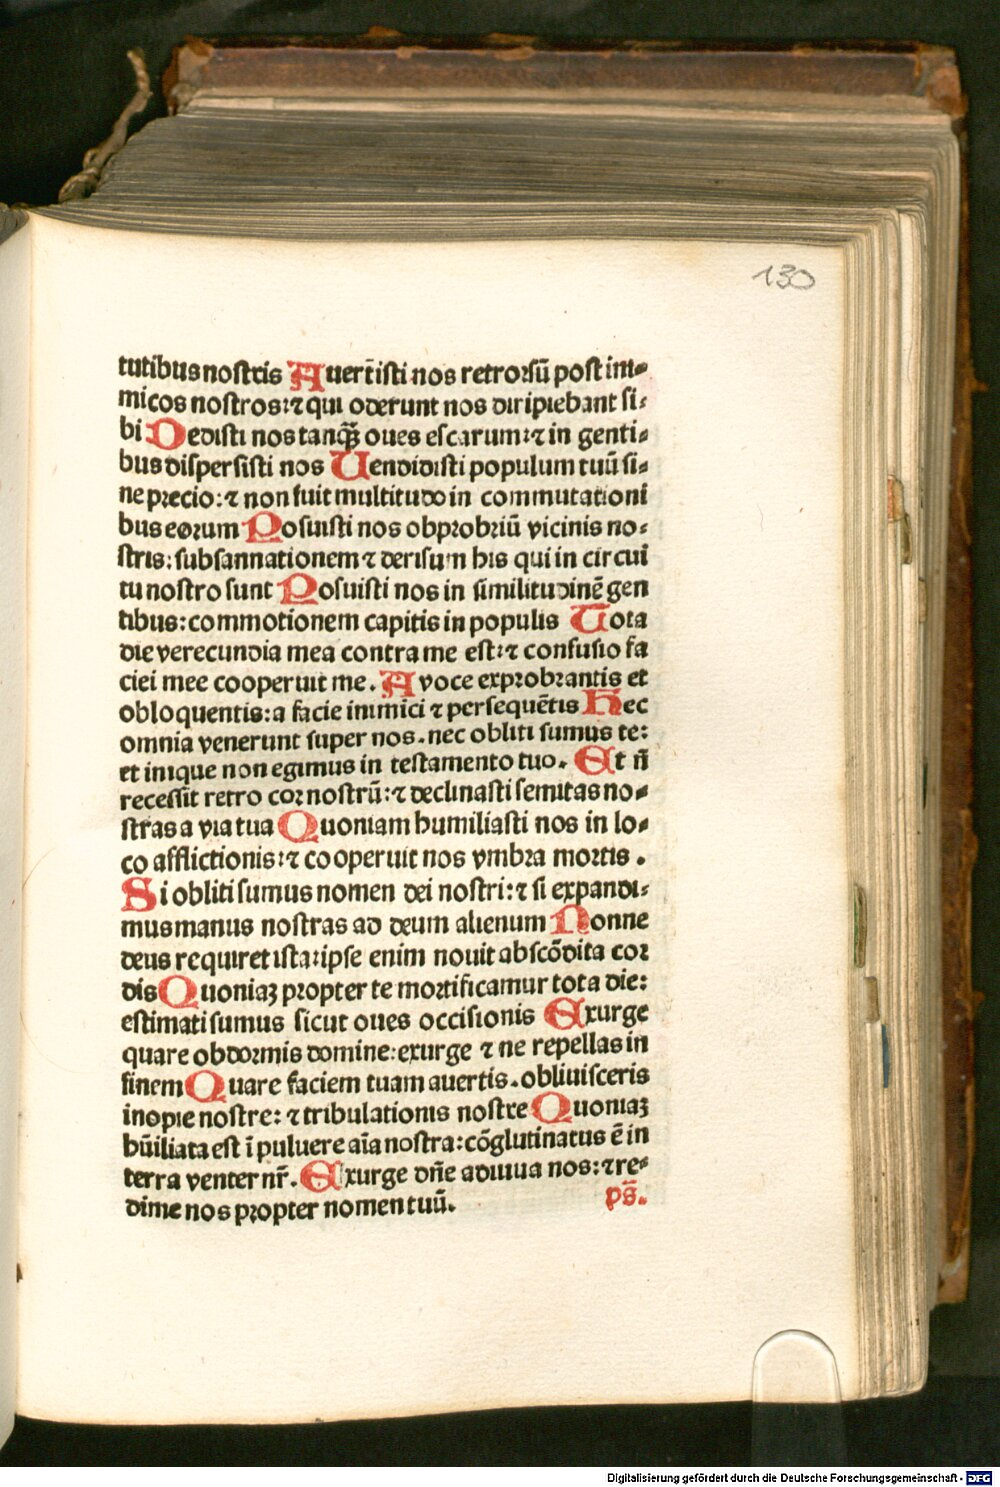 130
tutibus nostris Auertisti nos retrorsū post ini⸗
micos nostros: ⁊ qui oderunt nos diripiebant si⸗
bi Dedisti nos tanqꝫ oues escarum: ⁊ in genti⸗
bus dispersisti nos Uendidisti populum tuū si⸗
ne precio: ⁊ non fuit multitudo in commutationi
bus eorum Posuisti nos obprobriū vicinis no⸗
stris: subsannationem ⁊ derisum his qui in circui
tu nostro sunt Posuisti nos in similitudinē gen
tibus: commotionem capitis in populis Tota
die verecundia mea contra me est: ⁊ confusio fa
ciei mee cooperuit me. A voce exprobrantis et
obloquentis: a facie inimici ⁊ persequētis Hec
omnia venerunt super nos. nec obliti sumus te:
et inique non egimus in testamento tuo. Et n̄
recessit retro cor nostrū: ⁊ declinasti semitas no⸗
stras a via tua Quoniam humiliasti nos in lo⸗
co afflictionis: ⁊ cooperuit nos vmbra mortis.
Si obliti sumus nomen dei nostri: ⁊ si expandi⸗
mus manus nostras ad deum alienum Nonne
deus requiret ista: ipse enim nouit abscōdita cor
dis Quoniaꝫ propter te mortificamur tota die:
estimati sumus sicut oues occisionis Exurge
quare obdormis domine: exurge ⁊ ne repellas in
finem Quare faciem tuam auertis. obliuisceris
inopie nostre: ⁊ tribulationis nostre Quoniaꝫ
hūiliata est ī puluere aīa nostra: cōglutinatus ē in
terra venter nr̄. Exurge dn̄e adiuua nos: ⁊ re⸗
dime nos propter nomen tuū. ps̄.
Digitalisierung gefördert durch die Deutsche Forschungsgemeinschaft - DFG